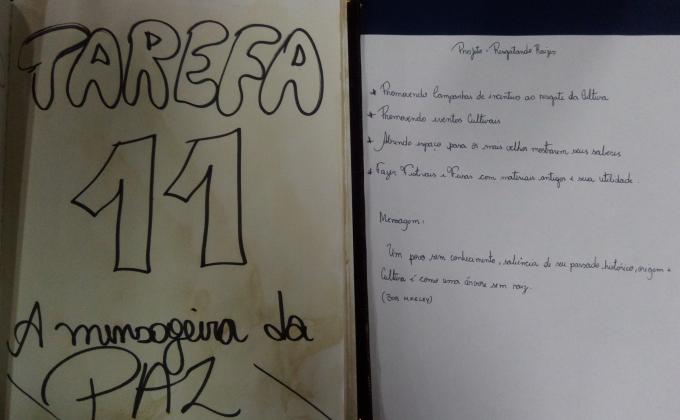 TAREFA
11
A mensageira da
PAZ
Projeto - Resgatando Raízes
* Promovendo Campanhas de incentivo ao resgate da Cultura
* Promovendo eventos Culturais
* Abrindo espaço para os mais velhos mostrarem seus saberes
* Fazer Festivais e Feiras com materiais antigos e sua utilidade.
Mensagem:
Um povo sem conhecimento, saliência de seu passado histórico, origem e
Cultura é como uma árvore sem raiz.
(BOB MARLEY)